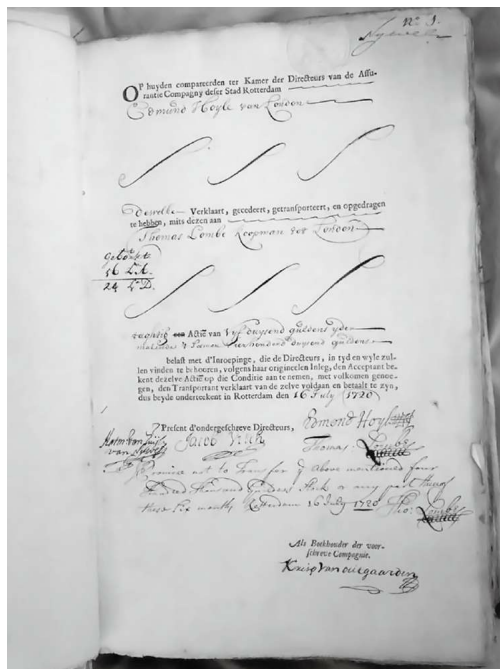 No 1.
OP huyden compareerden ter Kamer der Directeurs van de Assu-
rantie Compagny deser Stad Rotterdam
Edmund Hoyle van London
Dewelke Verklaart, gecedeert, getransporteert, en opgedragen
te hebben, mits dezen aan
Thomas Lombe Koopman tot London
24
tagtig Actie van Vyf duysend guldens yder
belast met d'Inroepinge, die de Directeurs, in tyd en wyle zul-
len vinden te behooren, volgens haar origineelen Inleg, den Acceptant be-
kent dezelve Actie op die Conditie aan te nemen, met volkomen genoe-
gen, den Transportant verklaart van de zelve voldaan en betaalt te zyn,
dus beyde onderteekent in Rotterdam den 16 July 1720
Present d'ondergeschreve Directeurs,
Edmond Hoyle
Jacob
Thomas Lombe
I Promise not to Transfer ye above mentioned four
hundred thousand Guldens Stock or any part thereof
these six months Rotterdam 16 July 1720 Tho: Lombe
Als Boekhouder der voor-
schreve Compagnie.